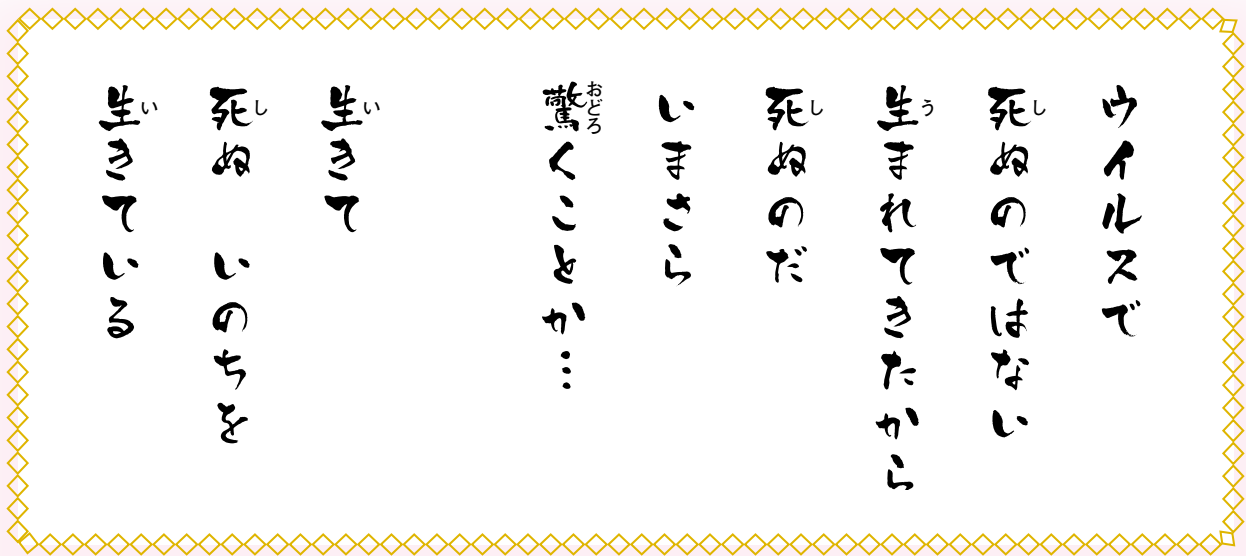 ウイルスで
死ぬのではない
生まれてきたから
死ぬのだ
いまさら
驚くことか…
生きて
死ぬ　いのちを
生きている